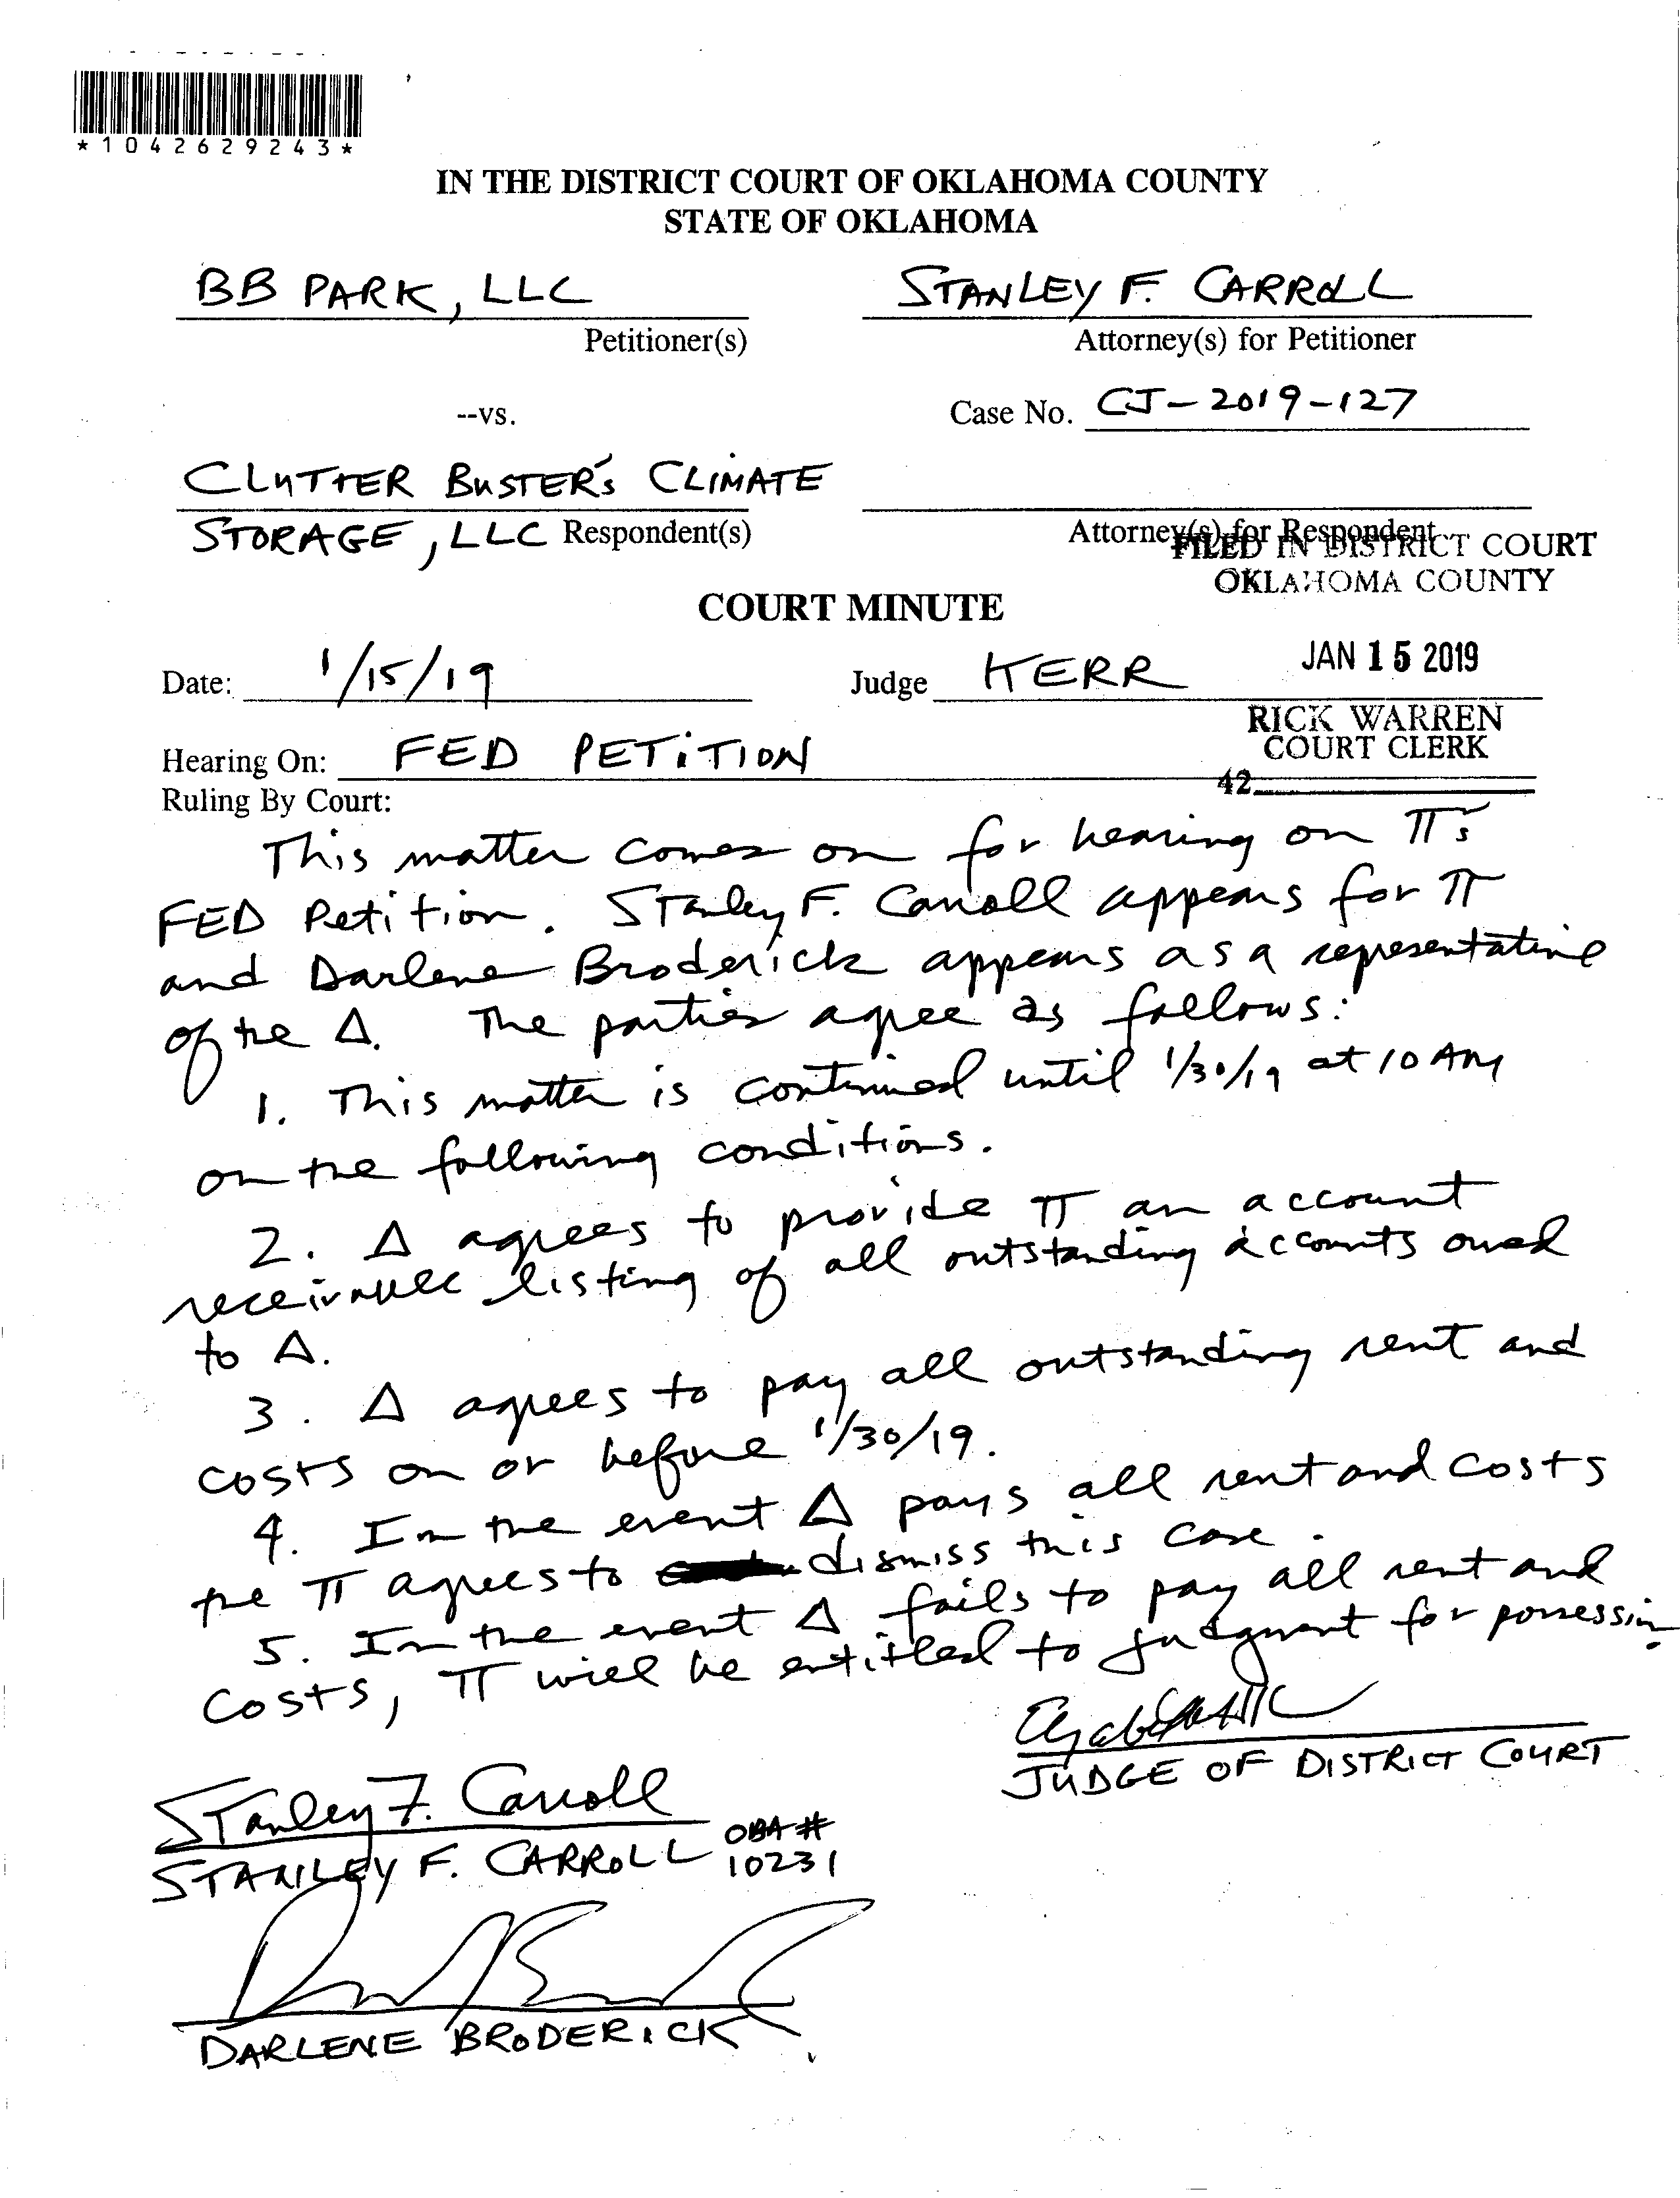 *1042629243*
IN THE DISTRICT COURT OF OKLAHOMA COUNTY
STATE OF OKLAHOMA
BB PARK, LLC
Petitioner(s)
STANLEY F. CARROLL
Attorney(s) for Petitioner
--vs.
Case No. CJ-2019-127
CLUTTER BUSTER'S CLIMATE
STORAGE, LLC Respondent(s)
Attorney(s) for Respondent
FILED IN DISTRICT COURT
OKLAHOMA COUNTY
COURT MINUTE
Date: 1/15/19
Judge KERR
JAN 15 2019
RICK WARREN
COURT CLERK
42
Hearing On: FED PETITION
Ruling By Court:
This matter comes on for hearing on π's
FED Petition. Stanley F. Carroll appears for π
and Darlene Broderick appears as a representative
of the Δ. The parties agree as follows:
1. This matter is continued until 1/30/19 at 10 AM
on the following conditions.
2. Δ agrees to provide π an account
receivable listing of all outstanding accounts owed
to Δ.
3. Δ agrees to pay all outstanding rent and
costs on or before 1/30/19.
4. In the event Δ pays all rent and costs
the π agrees to dismiss this case.
5. In the event Δ fails to pay all rent and
costs, π will be entitled to judgment for possession
JUDGE OF DISTRICT COURT
Stanley F. Carroll
STANLEY F. CARROLL OBA #
10231
DARLENE BRODERICK